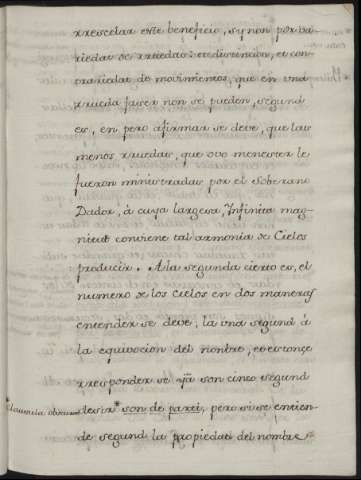 rrescelar este beneficio, synon por va-
riedat de rruedas: et distincion, et con-
trariedat de movimientos, que en una
rrueda faser non se pueden, segund
es, en pero afirmar se deve, que las
menos rruedas, que ovo menester le
fueron ministradas por el soberano
Dador, á cuya largesa, Infinita mag-
nitud conviene tal armonia de Cielos
producir. A la segunda cierto es, el
numero de los Cielos en dos maneras
entender se deve, la una segund á
la equivocion del nombre, et estonçe
rresponder se ya son cinco segund
desir* son de partei, pero si se entien-
de segund la propiedat del nombre
*clausula obscura